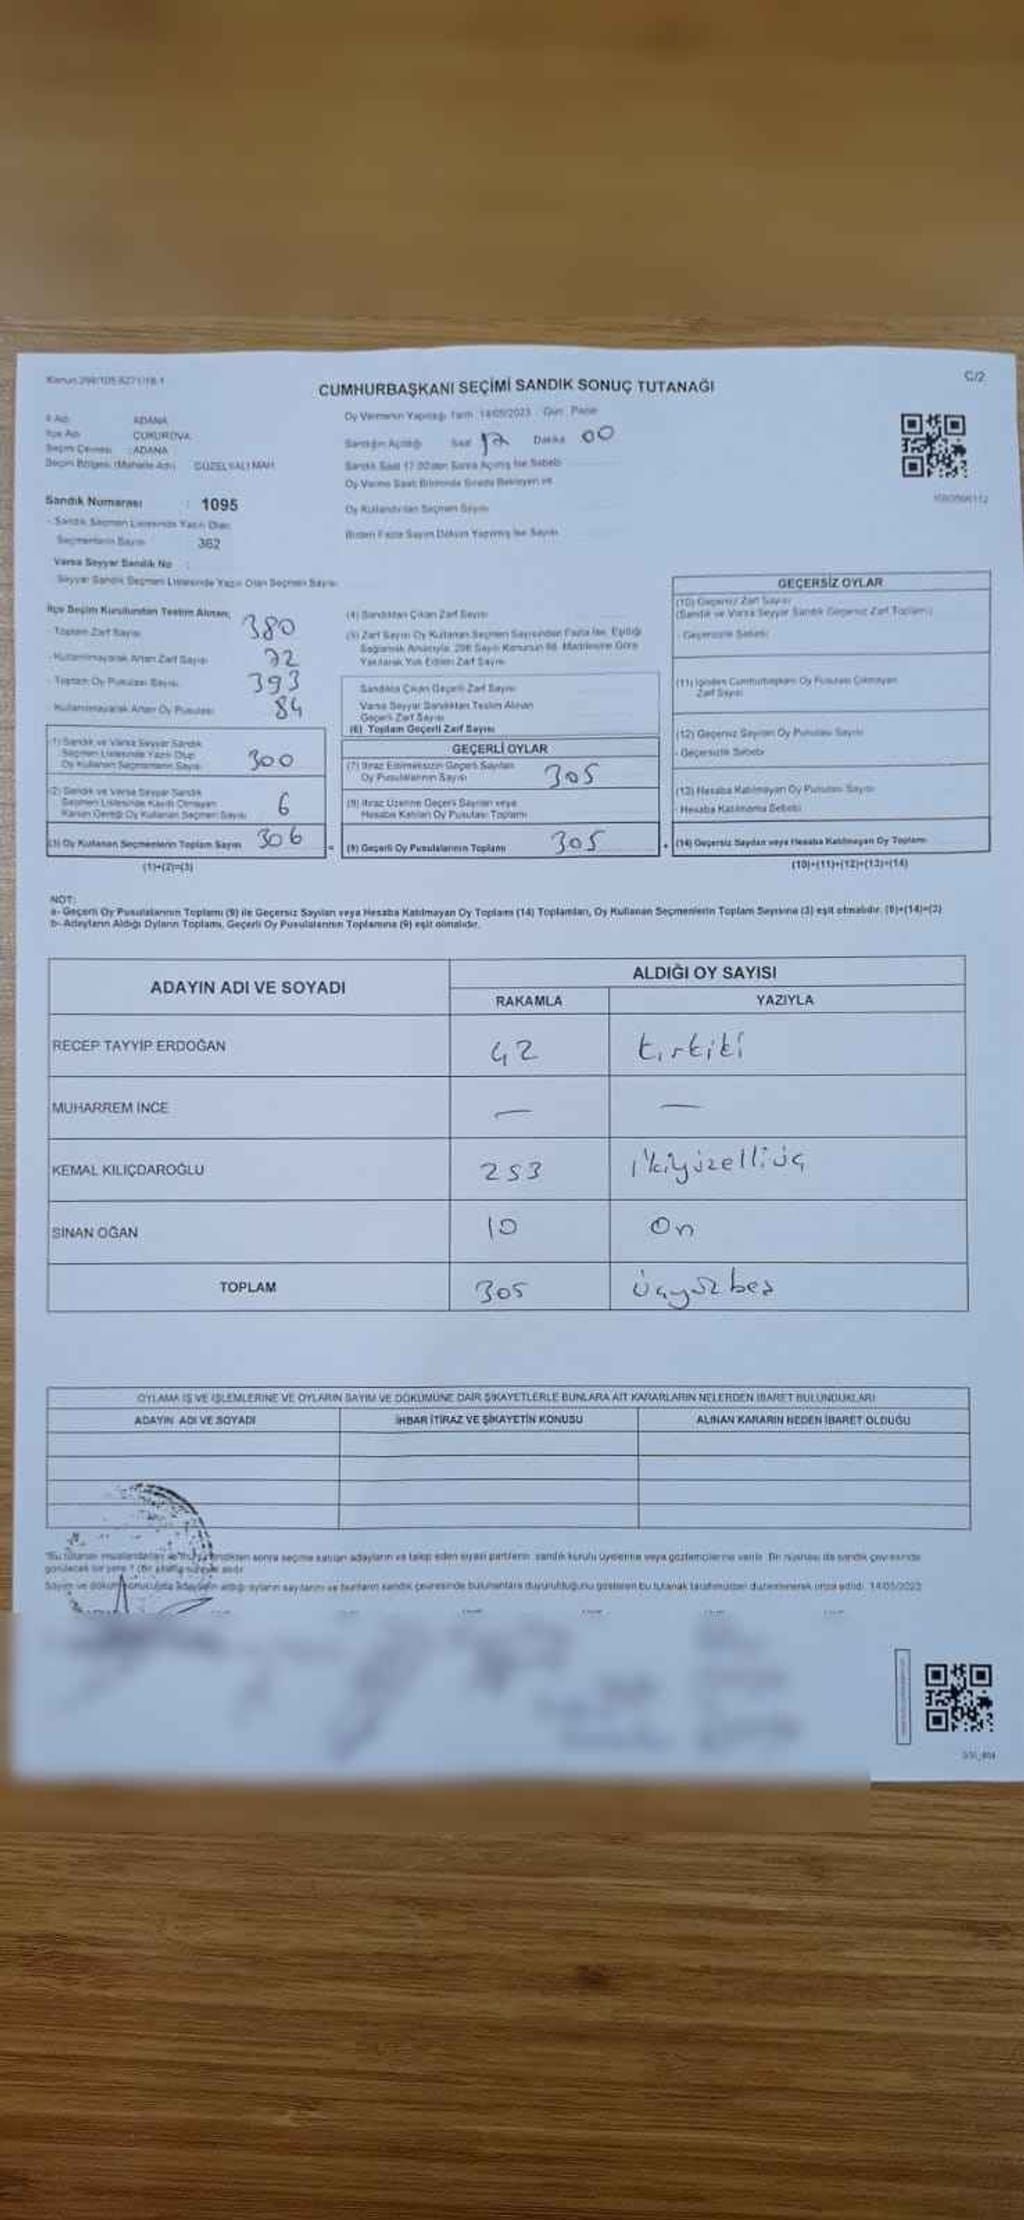 Kanun 298/105 6271/18-1
C/2
CUMHURBAŞKANI SEÇİMİ SANDIK SONUÇ TUTANAĞI
İl Adı : ADANA
İlçe Adı : ÇUKUROVA
Seçim Çevresi : ADANA
Seçim Bölgesi (Mahalle Adı) : GÜZELYALI MAH.
Sandık Numarası : 1095
- Sandık Seçmen Listesinde Yazılı Olan
Seçmenlerin Sayısı : 362
Varsa Seyyar Sandık No :
Seyyar Sandık Seçmen Listesinde Yazılı Olan Seçmen Sayısı
Oy Vermenin Yapıldığı Tarih : 14/05/2023 Gün : Pazar
Sandığın Açıldığı Saat 17 Dakika 00
Sandık Saat 17.00'den Sonra Açılmış İse Sebebi
Oy Verme Saati Bitiminde Sırada Bekleyen ve
Oy Kullandırılan Seçmen Sayısı
Birden Fazla Sayım Döküm Yapılmış İse Sayısı
İlçe Seçim Kurulundan Teslim Alınan;
- Toplam Zarf Sayısı 380
- Kullanılmayarak Artan Zarf Sayısı 72
- Toplam Oy Pusulası Sayısı 393
- Kullanılmayarak Artan Oy Pusulası 84
(1) Sandık ve Varsa Seyyar Sandık
Seçmen Listesinde Yazılı Olup
Oy Kullanan Seçmenlerin Sayısı 300
(2) Sandık ve Varsa Seyyar Sandık
Seçmen Listesinde Kayıtlı Olmayan
Kanun Gereği Oy Kullanan Seçmen Sayısı 6
(3) Oy Kullanan Seçmenlerin Toplam Sayısı 306
(1)+(2)=(3)
(4) Sandıktan Çıkan Zarf Sayısı
(5) Zarf Sayısı Oy Kullanan Seçmen Sayısından Fazla İse, Eşitliği
Sağlamak Amacıyla, 298 Sayılı Kanunun 98. Maddesine Göre
Yakılarak Yok Edilen Zarf Sayısı
Sandıkta Çıkan Geçerli Zarf Sayısı
Varsa Seyyar Sandıktan Teslim Alınan
Geçerli Zarf Sayısı
(6) Toplam Geçerli Zarf Sayısı
GEÇERLİ OYLAR
(7) İtiraz Edilmeksizin Geçerli Sayılan
Oy Pusulalarının Sayısı 305
(8) İtiraz Üzerine Geçerli Sayılan veya
Hesaba Katılan Oy Pusulası Toplamı
(9) Geçerli Oy Pusulalarının Toplamı 305
GEÇERSİZ OYLAR
(10) Geçersiz Zarf Sayısı
(Sandık ve Varsa Seyyar Sandık Geçersiz Zarf Toplamı)
- Geçersizlik Sebebi
(11) İçinden Cumhurbaşkanı Oy Pusulası Çıkmayan
Zarf Sayısı
(12) Geçersiz Sayılan Oy Pusulası Sayısı
- Geçersizlik Sebebi
(13) Hesaba Katılmayan Oy Pusulası Sayısı
- Hesaba Katılmama Sebebi
(14) Geçersiz Sayılan veya Hesaba Katılmayan Oy Toplamı
(10)+(11)+(12)+(13)=(14)
NOT:
a- Geçerli Oy Pusulalarının Toplamı (9) ile Geçersiz Sayılan veya Hesaba Katılmayan Oy Toplamı (14) Toplamları, Oy Kullanan Seçmenlerin Toplam Sayısına (3) eşit olmalıdır. (9)+(14)=(3)
b- Adayların Aldığı Oyların Toplamı, Geçerli Oy Pusulalarının Toplamına (9) eşit olmalıdır.
ADAYIN ADI VE SOYADI
ALDIĞI OY SAYISI
RAKAMLA YAZIYLA
RECEP TAYYİP ERDOĞAN 42 kırkiki
MUHARREM İNCE — —
KEMAL KILIÇDAROĞLU 253 ikiyüzelliüç
SİNAN OĞAN 10 On
TOPLAM 305 Üçyüzbeş
OYLAMA İŞ VE İŞLEMLERİNE VE OYLARIN SAYIM VE DÖKÜMÜNE DAİR ŞİKAYETLERLE BUNLARA AİT KARARLARIN NELERDEN İBARET BULUNDUKLARI
ADAYIN ADI VE SOYADI İHBAR İTİRAZ VE ŞİKAYETİN KONUSU ALINAN KARARIN NEDEN İBARET OLDUĞU
sonra seçime katılan adayların ve takip eden siyasi partilerin sandık kurulu üyelerine veya gözlemcilerine verilir. Bir nüshası da sandık çevresinde
aldığı oyların sayılarını ve bunların sandık çevresinde bulunanlara duyurulduğunu gösteren bu tutanak tarafımızdan düzenlenerek imza edildi. 14/05/2023